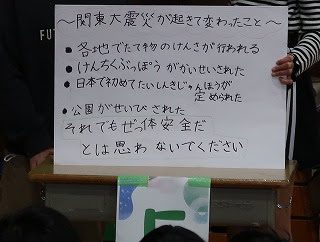 ～関東大震災が起きて変わったこと～
・各地でたて物のけんさが行われる
・けんちくぶっぽうがかいせいされた
・日本で初めてたいしんきじゅんほうが
定められた
・公園がせいびされた
それでもぜっ体安全だ
とは思わないでください